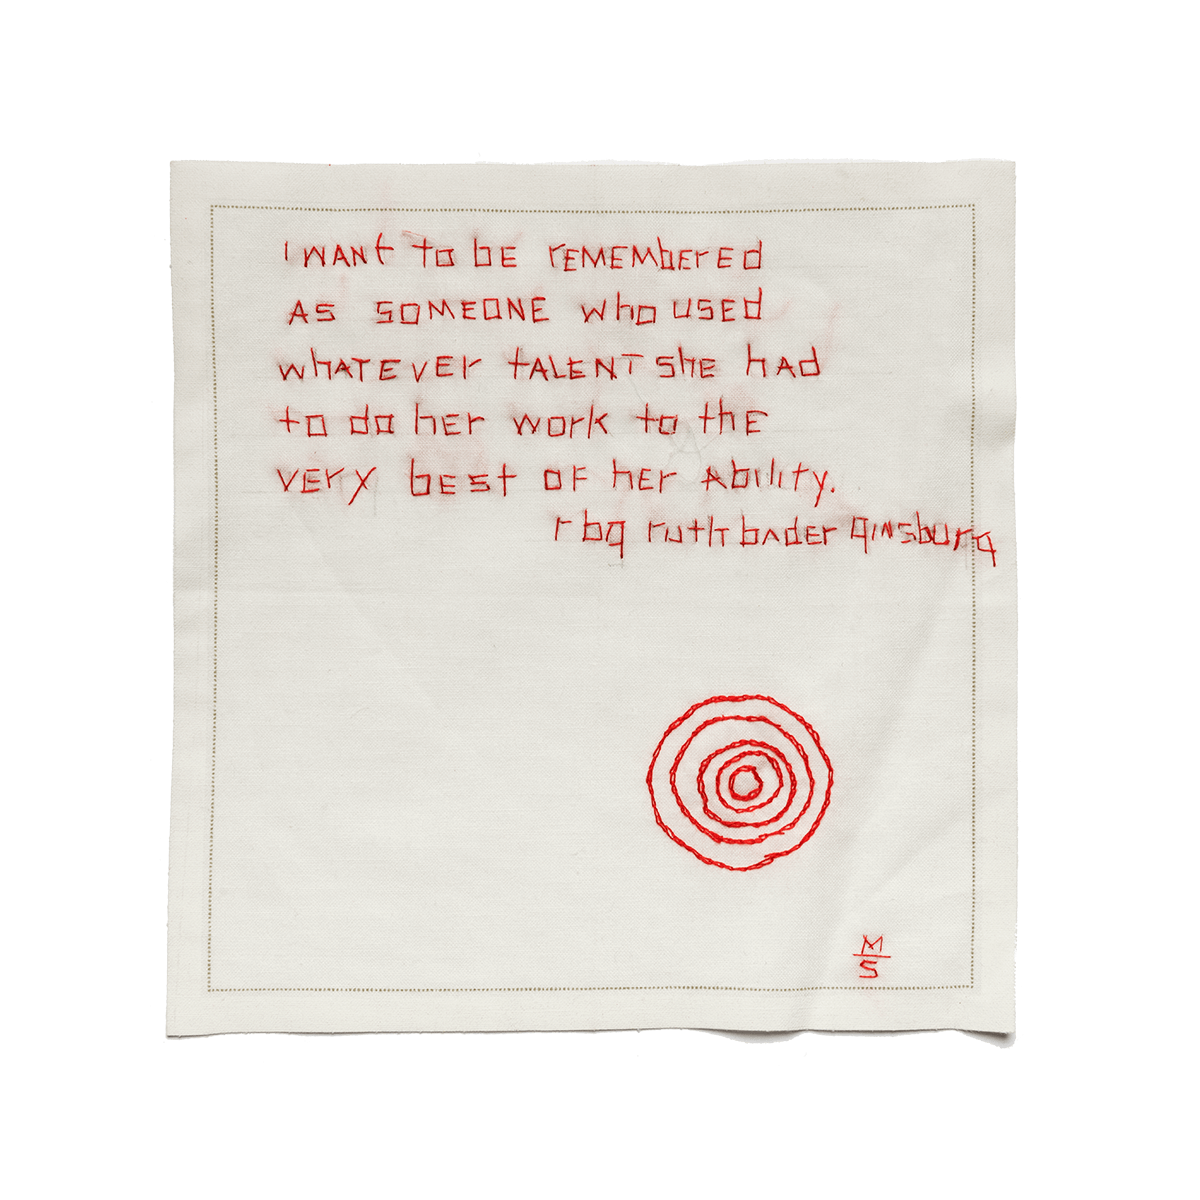 I WANt to bE rEMEMbErEd
AS SOMEONE who uSEd
whATEVEr tALENT ShE hAd
to do hEr work to thE
VErY bESt OF hEr AbiliTy.
rbg ruth bAdEr giNSburg
M
S